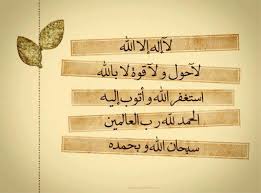 لا إله إلا الله
لا حول ولا قوة لا بالله
استغفر الله و أتوب إليه
الحمد لله رب العالمين
سبحان الله و بحمده